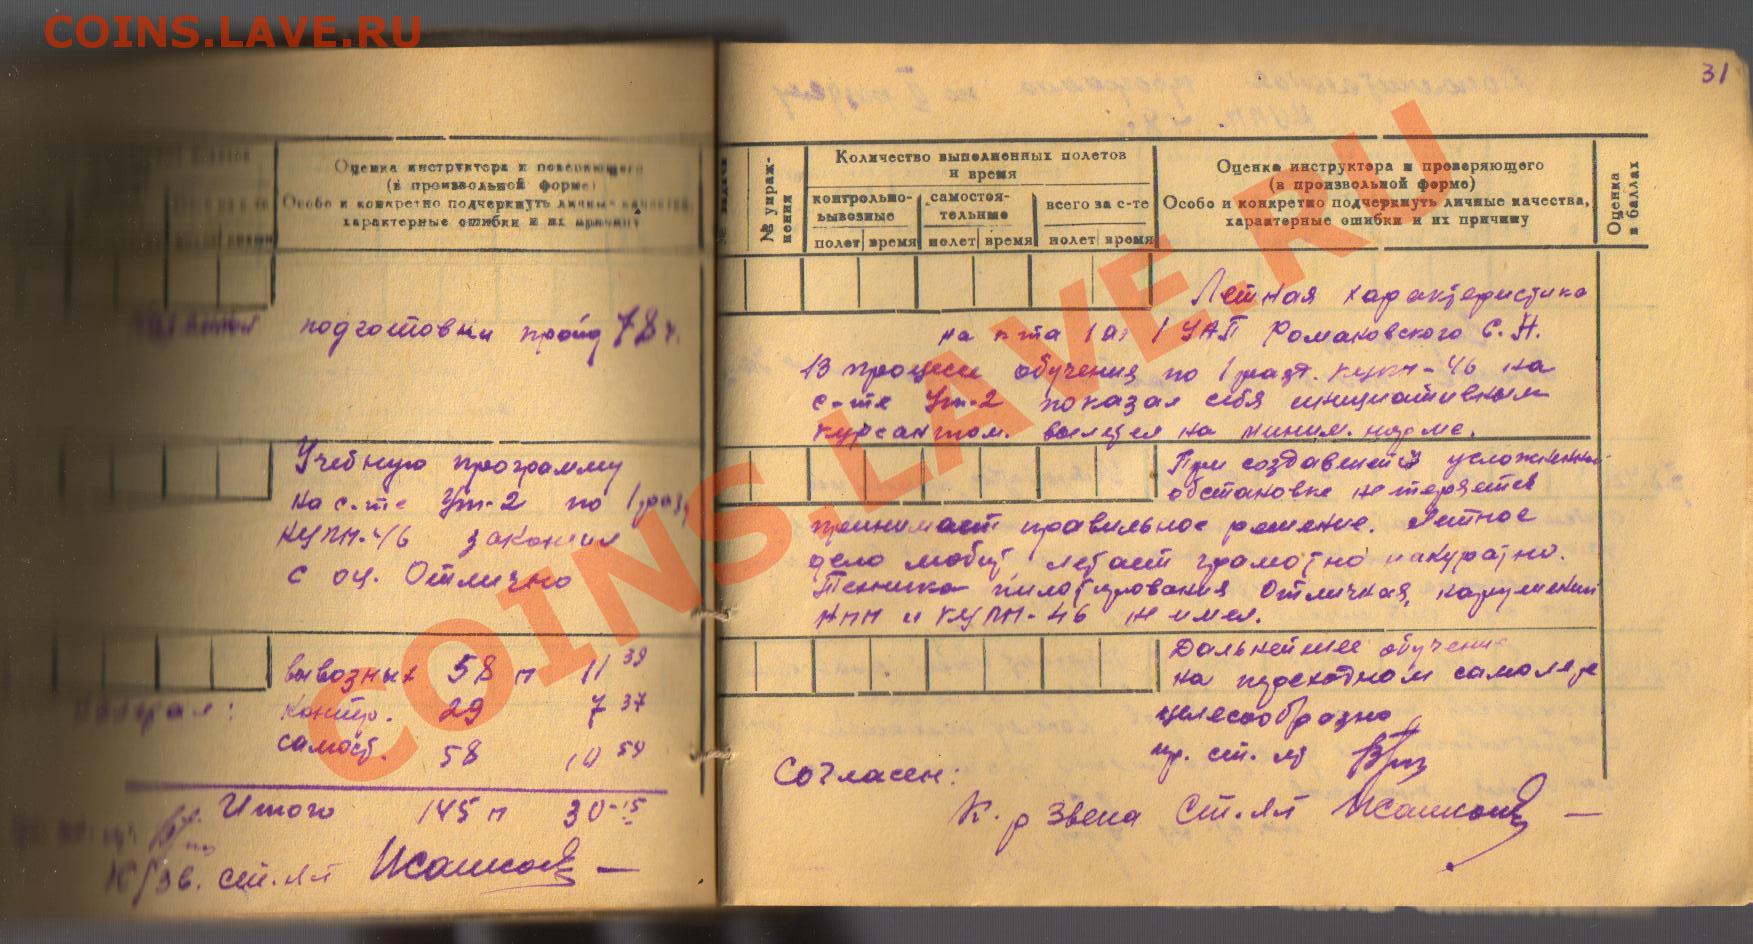 COINS.LAVE.RU
Оценка инструктора и поверяющего
(в произвольной форме)
Особо и конкретно подчеркнуть личные качества,
характерные ошибки и их причину
подготовки пройд 78 ч.
Учебную программу
на с-те Ут-2 по 1 разд
КУЛП-46 закончил
с оц. Отлично
вывозных 58 п 11 39
контр. 29 7 37
самост. 58 10 59
Итого 145 п 30-15
К/зв. ст. л-т Исаиков
31
№ упраж-
нения
Количество выполненных полетов
и время
контрольно-
вывозные
самостоя-
тельные
всего за с-те
полет время полет время полет время
Оценка инструктора и проверяющего
(в произвольной форме)
Особо и конкретно подчеркнуть личные качества,
характерные ошибки и их причину
Оценка
в баллах
Летная характеристика
на к-та 1 УАП Ромаковского С. Н.
В процессе обучения по 1 разд. КУЛП-46 на
с-те Ут-2 показал себя инициативным
курсантом. вылетел на миним. норме.
При создавшейся усложненной
обстановке не теряется
принимает правильное решение. Летное
дело любит летает грамотно и акуратно.
Техника пилотирования Отличная, нарушений
НПП и КУЛП-46 не имел.
Дальнейшее обучение
на переходном самолете
целесообразно
ст. лт
Согласен:
К-р звена Ст. л-т Исаиков
COINS.LAVE.RU